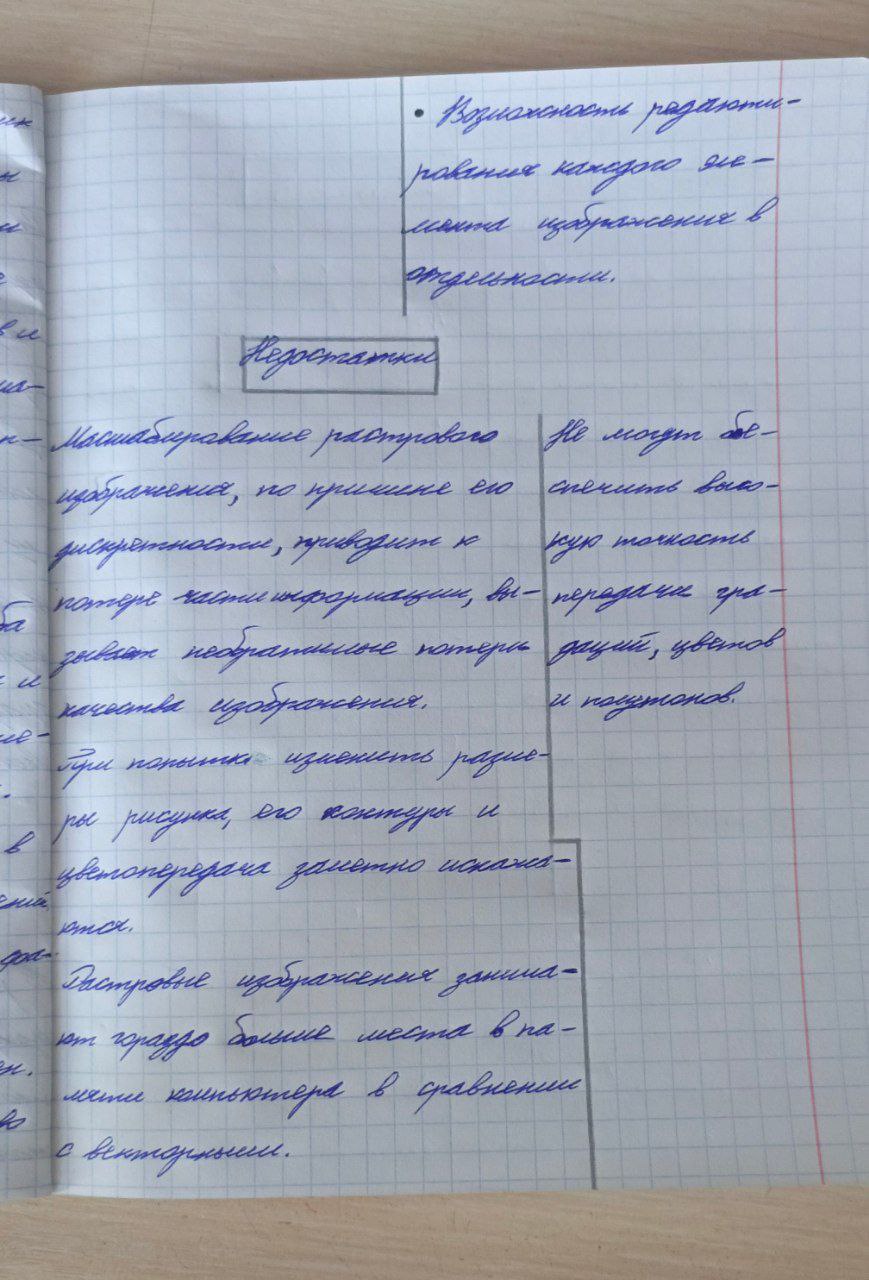 • Возможность редакти-
рования каждого эле-
мента изображения в
отдельности.
Недостатки
Масштабирование растрового
изображения, по причине его
дискретности, приводит к
потере части информации, вы-
зывает необратимые потери
качества изображения.
При попытке изменить разме-
ры рисунка, его контуры и
цветопередача заметно искажа-
ются.
Растровые изображения занима-
ют гораздо больше места в па-
мяти компьютера в сравнении
с векторными.
Не могут обе-
спечить высо-
кую точность
передачи гра-
даций, цветов
и полутонов.